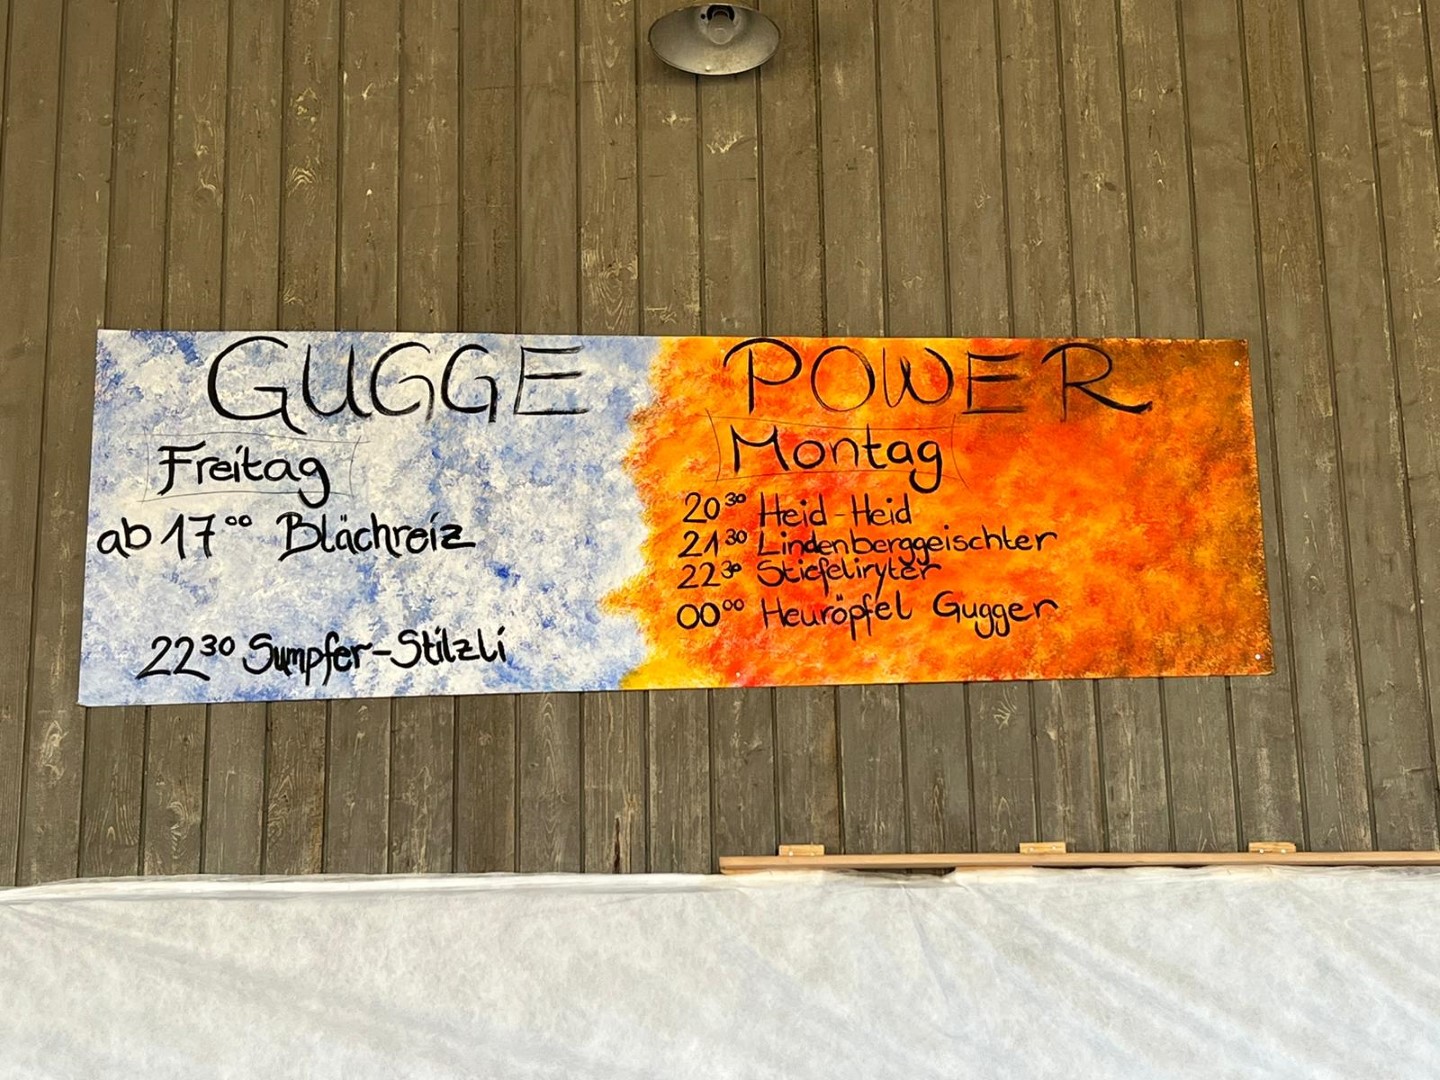 GUGGE POWER
Freitag
ab 17⁰⁰ Blächreiz
22³⁰ Sumpfer-Stilzli
Montag
20³⁰ Heid-Heid
21³⁰ Lindenberggeischter
22³⁰ Stiefeliryter
00⁰⁰ Heuröpfel Gugger